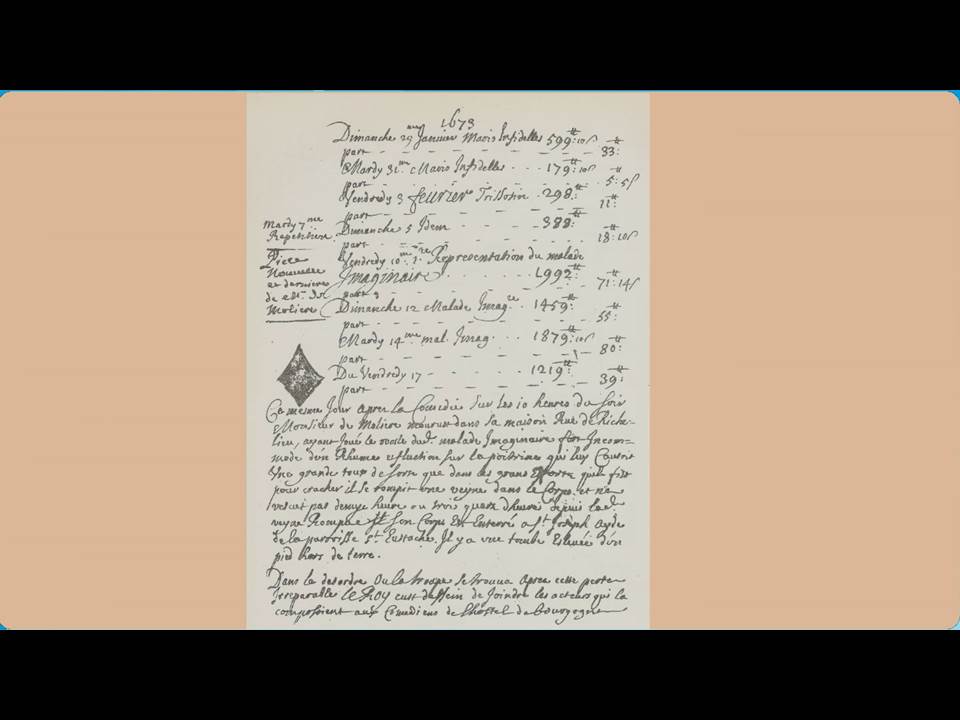 1673
Dimanche 29 Janvier Maris Infidelles 599#:10s
part - - - - - 33#:
Mardy 31.me Maris Infidelles . . . 179#:10s
part - - - - - 5#:5s
Vendredy 3 feurier Trissotin . 298#:
part - - - - - 11#:
Mardy 7me
Repetition
Dimanche 5 Idem - - - - 388#:
part - - - - - 18#:10s
Piece
Nouvelle
et derniere
de Mr. de
Moliere
Vendredy 10me 1.re Representation du malade
Imaginaire . . . . . 1992#:
part - - - - - 71#:14s
Dimanche 12 Malade Imag.re 1459#:
part - - - - - 55#:
Mardy 14me mal. Imag. . . 1879#:10s
part - - - - - 80#:
Du Vendredy 17 - - - - 1219#:
part - - - - - 39#:
Ce mesme Jour apres la Comedie Sur les 10 heures du soir
Monsieur de Moliere mourust dans sa maison Rue de Riche-
lieu, ayant Joué le roole dud. malade Imaginaire fort Incom-
modé d'un Rhume et fluction sur la poitrine qui luy Causoit
Une grande toux de sorte que dans les grans Efforts quil fist
pour cracher il se rompit une veyne dans le Corps. et ne
vescut pas demye heure ou trois quarts dheure depuis lad.
veyne Rompue son Corps Est Enterré a St. Joseph Ayde
de la parroisse St. Eustache. Il y a une tombe Eslevée d'un
pied hors de terre.
Dans le desordre Ou la troupe se trouva apres cette perte
Irreparable le ROY eust dessein de Joindre les acteurs qui la
composoient aux Comediens de lhostel de bourgogne